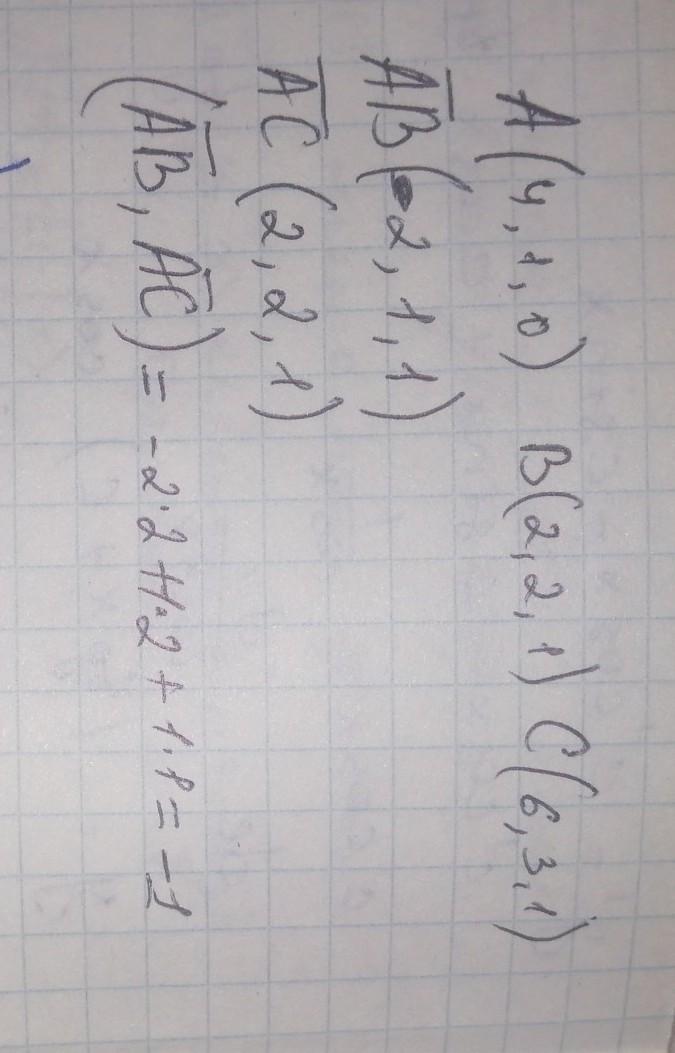 A(4,1,0) B(2,2,1) C(6,3,1)
A̅B̅(-2,1,1)
A̅C̅(2,2,1)
(A̅B̅, A̅C̅) = -2·2+1·2+1·1=-1